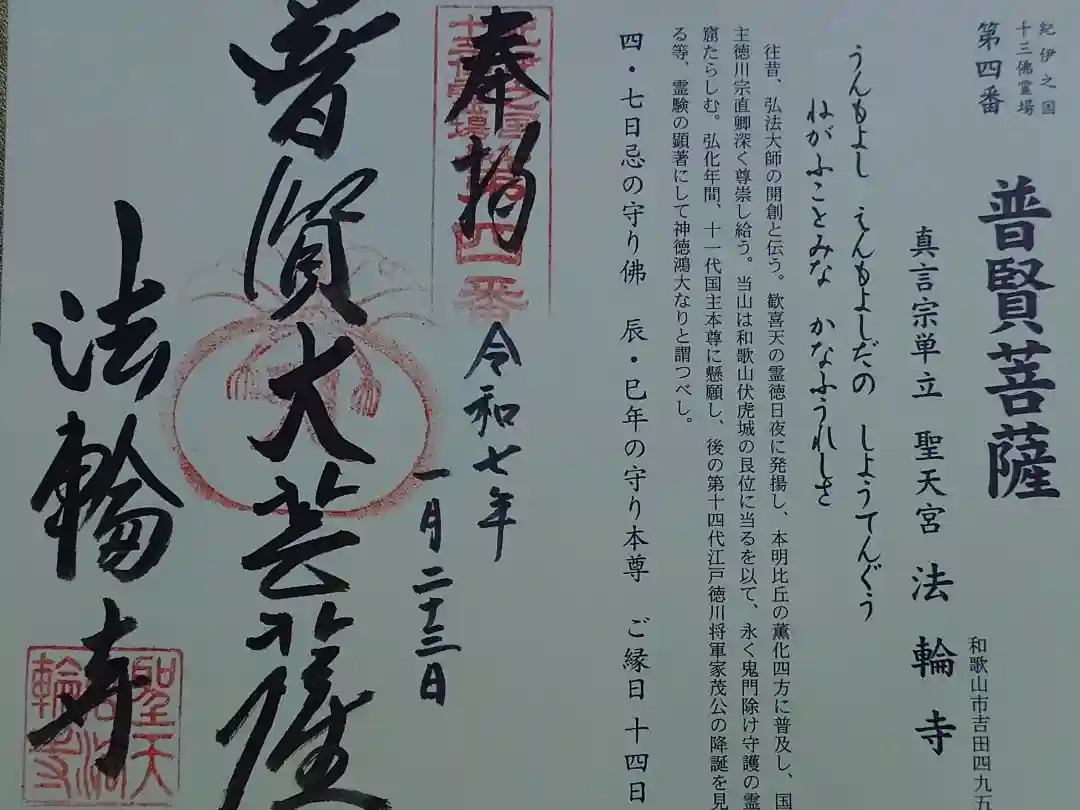 紀伊之国
十三佛霊場
第四番
普賢菩薩
和歌山市吉田四九五
真言宗単立 聖天宮 法輪寺
うんもよし えんもよしだの しようてんぐう
ねがふことみな かなふうれしさ
往昔、弘法大師の開創と伝う。歓喜天の霊徳日夜に発揚し、本明比丘の薫化四方に普及し、国
主徳川宗直卿深く尊崇し給う。当山は和歌山伏虎城の艮位に当るを以て、永く鬼門除け守護の霊
窟たらしむ。弘化年間、十一代国主本尊に懸願し、後の第十四代江戸徳川将軍家茂公の降誕を見
る等、霊験の顕著にして神徳鴻大なりと謂つべし。
四・七日忌の守り佛 辰・巳年の守り本尊 ご縁日 十四日
奉拝
第四番
令和七年
一月二十三日
普賢大菩薩
法輪寺
聖天